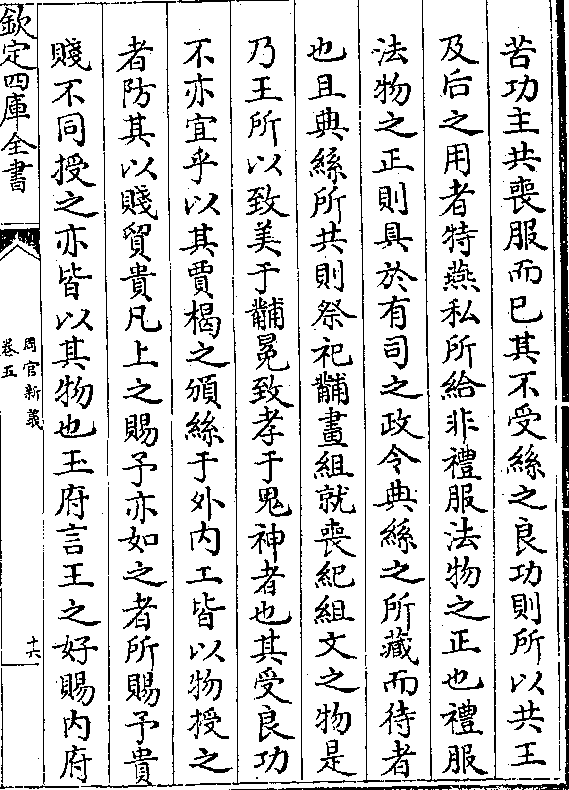 苦功主共喪服而已其不受絲之良功則所以共王
及后之用者特燕私所給非禮服法物之正也禮服
法物之正則具於有司之政令典絲之所藏而待者
也且典絲所共則祭祀黼畫組就喪紀組文之物是
乃王所以致美于黼冕致孝于鬼神者也其受良功
不亦宜乎以其賈楬之頒絲于外内工皆以物授之
者防其以賤貿貴凡上之賜予亦如之者所賜予貴
賤不同授之亦皆以其物也玉府言王之好賜内府
欽定四庫全書
周官新義
卷五
十六